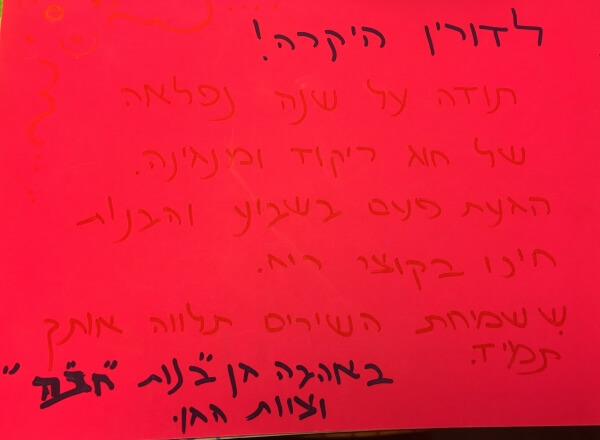 לדורין היקרה!
תודה על שנה נפלאה
של חוג ריקוד ומנגינה.
הגעת פעם בשבוע והבנות
חיכו בקוצר רוח.
ששמחת השירים תלווה אותך
תמיד.
באהבה גן "בנות
וצוות הגן.